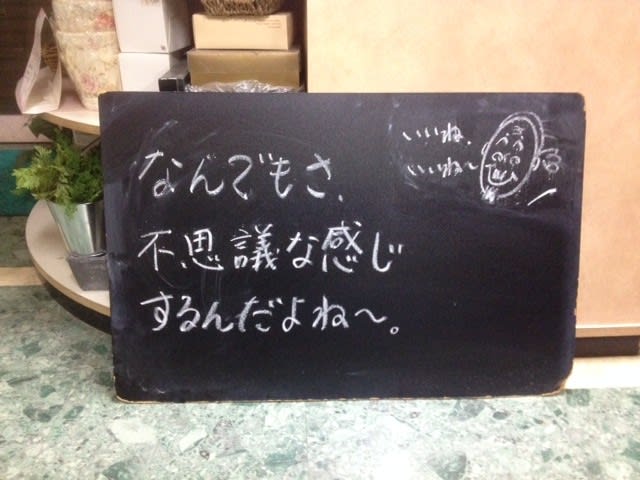 なんでもさ、
不思議な感じ
するんだよね〜。
いいね、
いいね〜